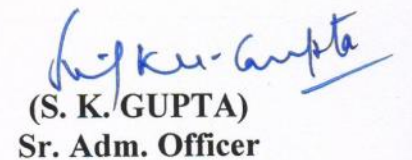 Kr. Gupta
(S. K. GUPTA)
Sr. Adm. Officer